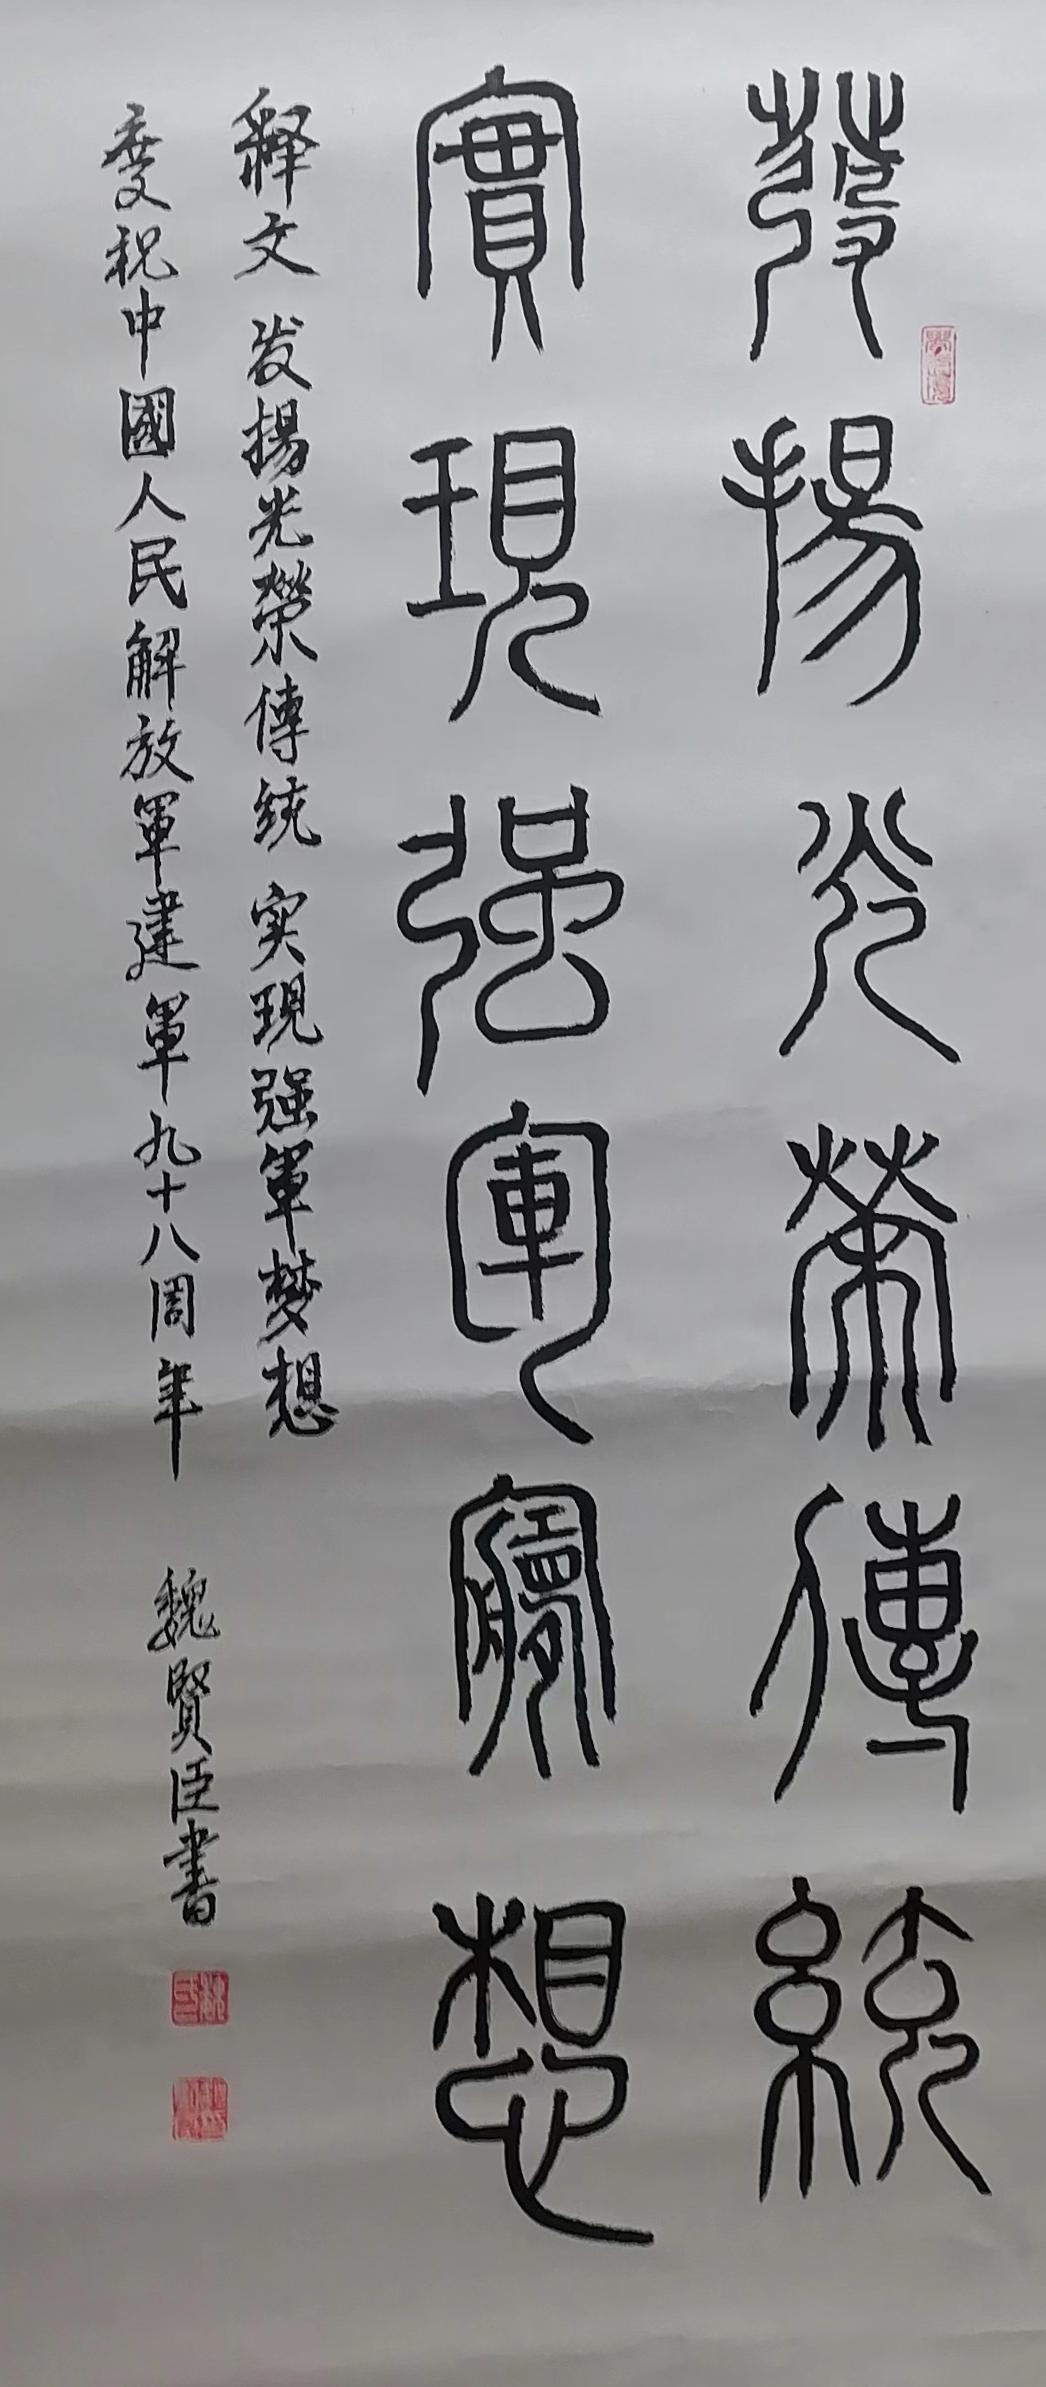 發揚光榮傳統
實現強軍夢想
釋文 发揚光榮傳統 实現强軍梦想
慶祝中國人民解放軍建軍九十八周年 魏賢臣書